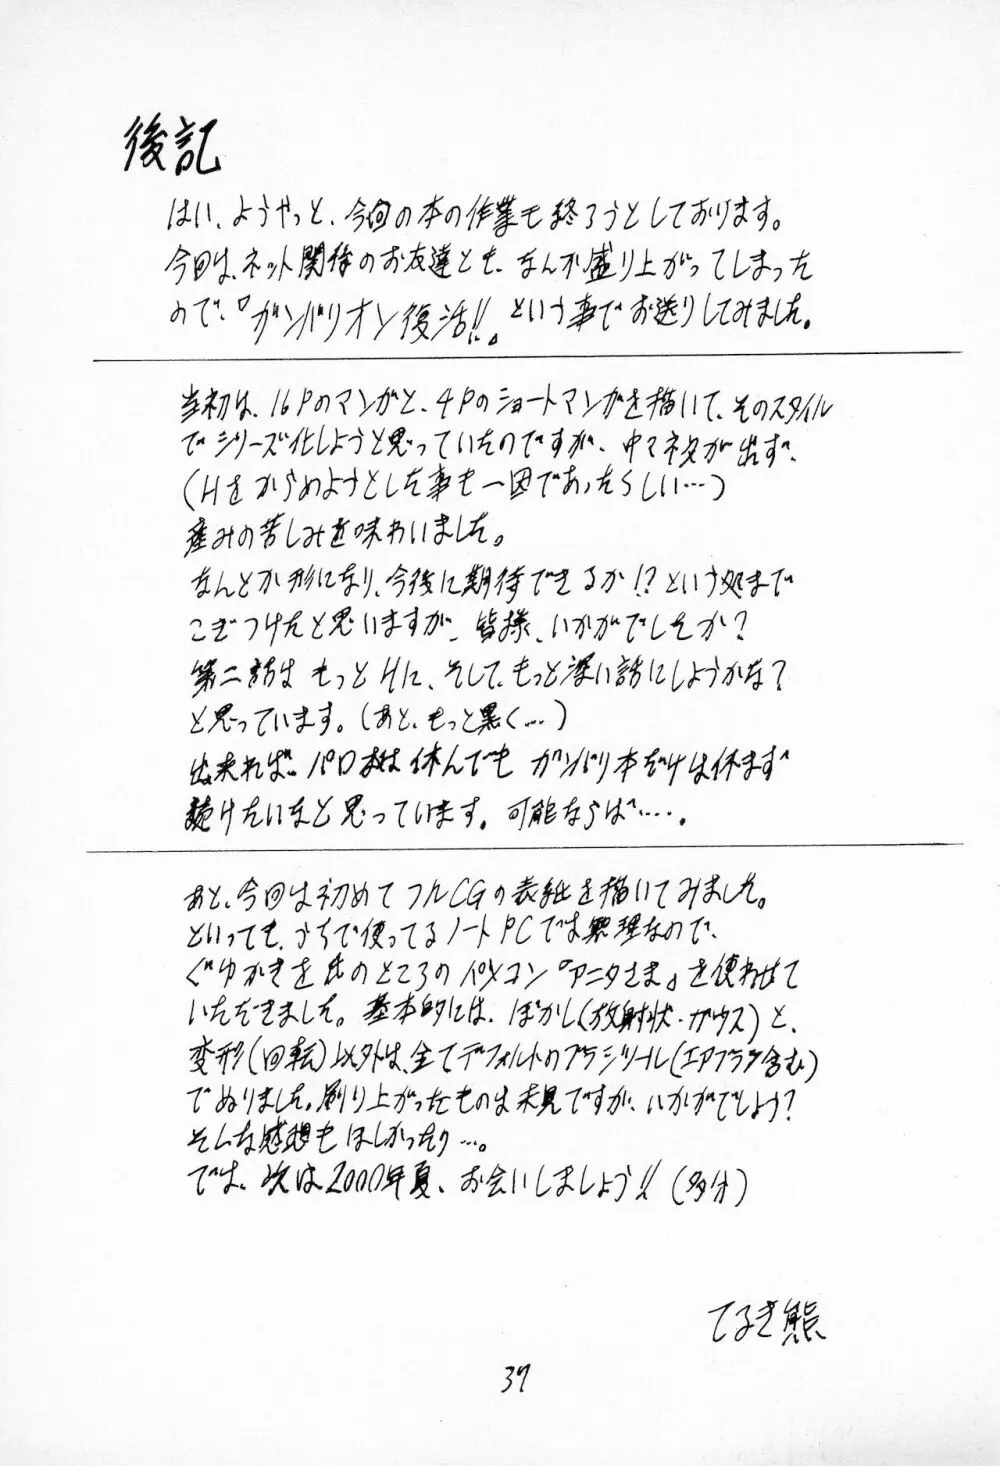 後記
はい、ようやっと、今回の本の作業も終ろうとしております。
今回は、ネット関係のお友達とも、なんか盛り上がってしまった
ので、『ガンバリオン復活!!』という事でお送りしてみました。
当初は、16Pのマンガと、4Pのショートマンガを描いて、そのスタイル
でシリーズ化しようと思っていたのですが、中々ネタが出ず、
(Hをからめようとした事も一因であったらしい…)
産みの苦しみを味わいました。
なんとか形になり、今後に期待できるか!?という処まで
こぎつけたと思いますが、皆様、いかがでしたか?
第二話はもっとHに、そして、もっと深い話にしようかな?
と思っています。(あと、もっと黒く…)
出来れば、パロ本は休んでもガンバリ本だけは休まず
続けたいなと思っています。可能ならば…。
あと、今回は初めてフルCGの表紙を描いてみました。
といっても、うちで使ってるノートPCでは無理なので、
ぐゆかき氏のところのパソコン『アニタさま』を使わせて
いただきました。基本的には、ぼかし(放射状・ガウス)と、
変形(回転)以外は、全てデフォルトのブラシツール(エアブラシ含む)
でぬりました。刷り上がったものは未見ですが、いかがでしょう?
そんな感想もほしかったり…。
では、次は2000年夏、お会いしましょう!!(多分)
てるき熊
37